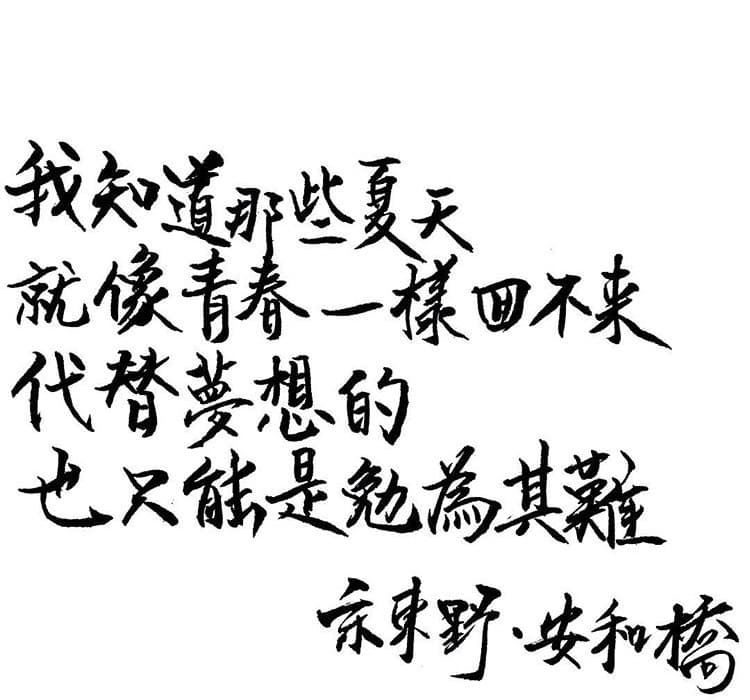 我知道那些夏天
就像青春一樣回不来
代替夢想的
也只能是勉為其難
宋東野·安和橋